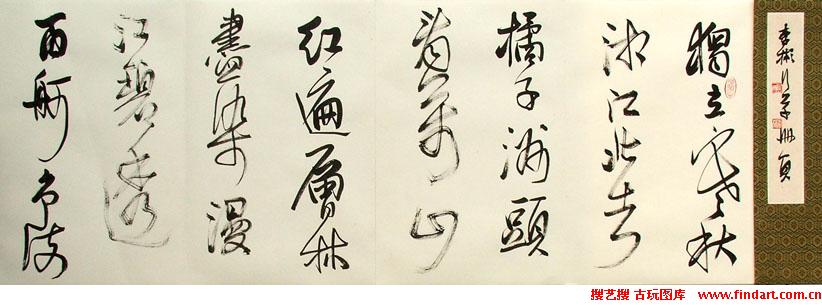 李彬行草冊頁
獨立寒秋
湘江北去
橘子洲頭
看萬山
红遍層林
盡染漫
江碧透
百舸争流
搜艺搜 古玩图库 www.findart.com.cn